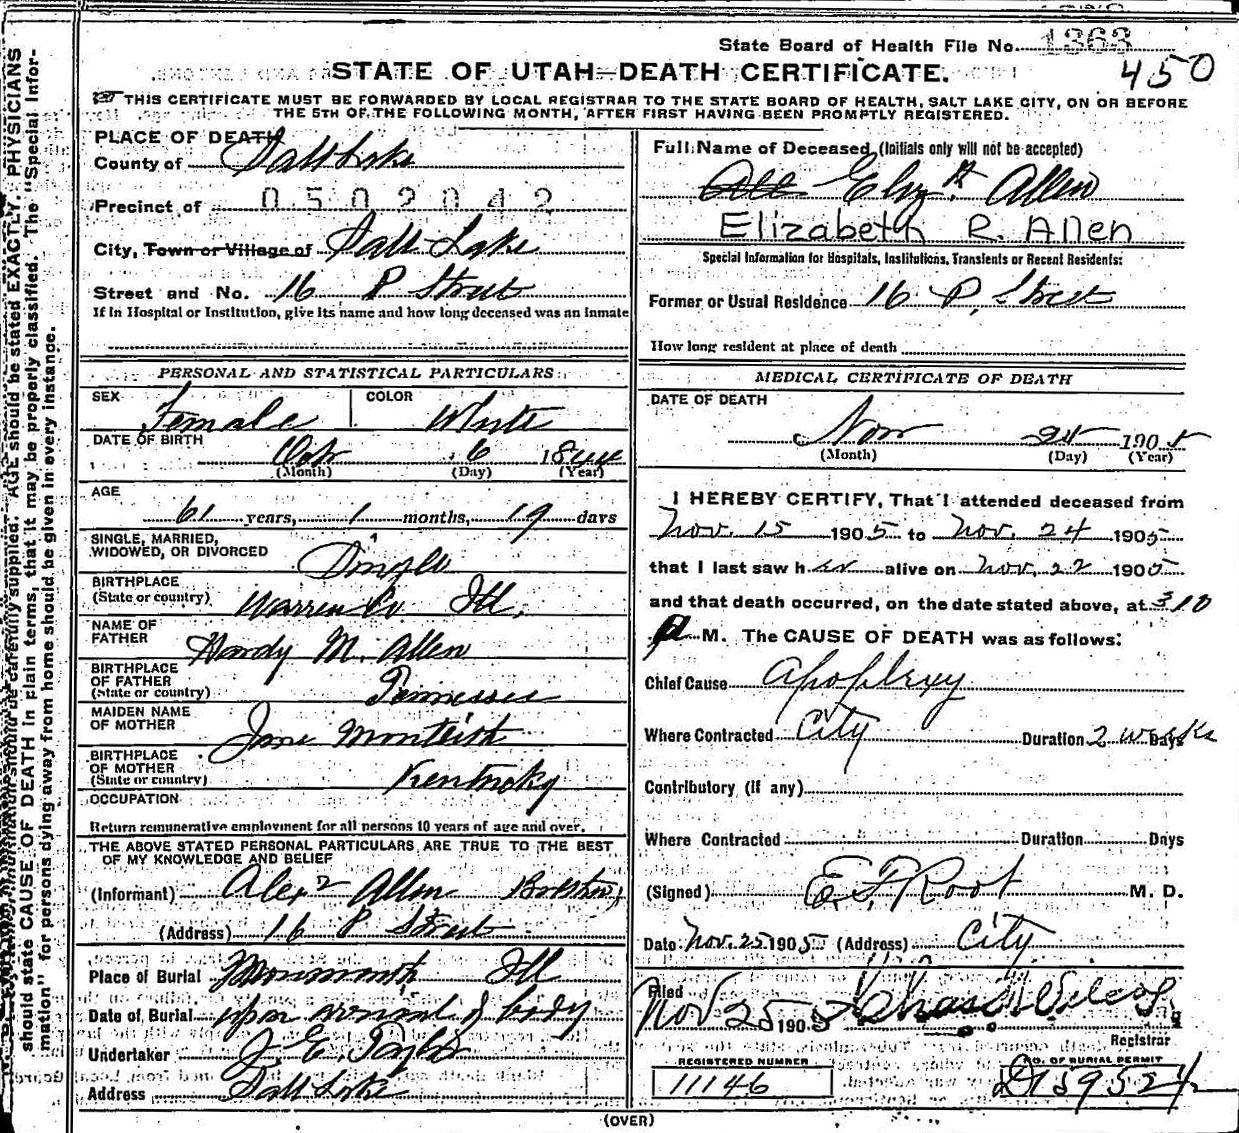 State Board of Health File No. 1363
450
STATE OF UTAH—DEATH CERTIFICATE.
THIS CERTIFICATE MUST BE FORWARDED BY LOCAL REGISTRAR TO THE STATE BOARD OF HEALTH, SALT LAKE CITY, ON OR BEFORE
THE 5TH OF THE FOLLOWING MONTH, AFTER FIRST HAVING BEEN PROMPTLY REGISTERED.
PLACE OF DEATH
County of Salt Lake
Precinct of 0502042
City, Town or Village of Salt Lake
Street and No. 16 P Street
If in Hospital or Institution, give its name and how long deceased was an inmate
PERSONAL AND STATISTICAL PARTICULARS
SEX Female COLOR White
DATE OF BIRTH Oct 6 1844
(Month) (Day) (Year)
AGE
61 years, 1 months, 19 days
SINGLE, MARRIED,
WIDOWED, OR DIVORCED Single
BIRTHPLACE
(State or country) Warren Co Ill.
NAME OF
FATHER Hardy M. Allen
BIRTHPLACE
OF FATHER
(State or country) Tennessee
MAIDEN NAME
OF MOTHER Jane Monteith
BIRTHPLACE
OF MOTHER
(State or country) Kentucky
OCCUPATION
Return remunerative employment for all persons 10 years of age and over.
THE ABOVE STATED PERSONAL PARTICULARS ARE TRUE TO THE BEST
OF MY KNOWLEDGE AND BELIEF
(Informant) Alex Allen
(Address) 16 P Street
Place of Burial Monmouth Ill
Date of Burial upon arrival of body
Undertaker J. E. Taylor
Address Salt Lake
Full Name of Deceased (Initials only will not be accepted)
Eliz. R Allen
Elizabeth R. Allen
Special Information for Hospitals, Institutions, Transients or Recent Residents:
Former or Usual Residence 16 P. Street
How long resident at place of death
MEDICAL CERTIFICATE OF DEATH
DATE OF DEATH
Nov 24 1905
(Month) (Day) (Year)
I HEREBY CERTIFY, That I attended deceased from
Nov. 15 1905 to Nov. 24 1905
that I last saw her alive on Nov. 22 1905
and that death occurred, on the date stated above, at 310
M. The CAUSE OF DEATH was as follows:
Chief Cause Apoplexy
Where Contracted City Duration 2 weeks Days
Contributory (if any)
Where Contracted Duration Days
(Signed) E. F. Root M. D.
Date Nov. 25 1905 (Address) City
Filed
Nov 25 1905
Registrar
REGISTERED NUMBER
11146
NO. OF BURIAL PERMIT
(OVER)
AGE should be stated EXACTLY. PHYSICIANS
should state CAUSE OF DEATH in plain terms, that it may be properly classified. The "Special Infor-
mation" for persons dying away from home should be given in every instance.